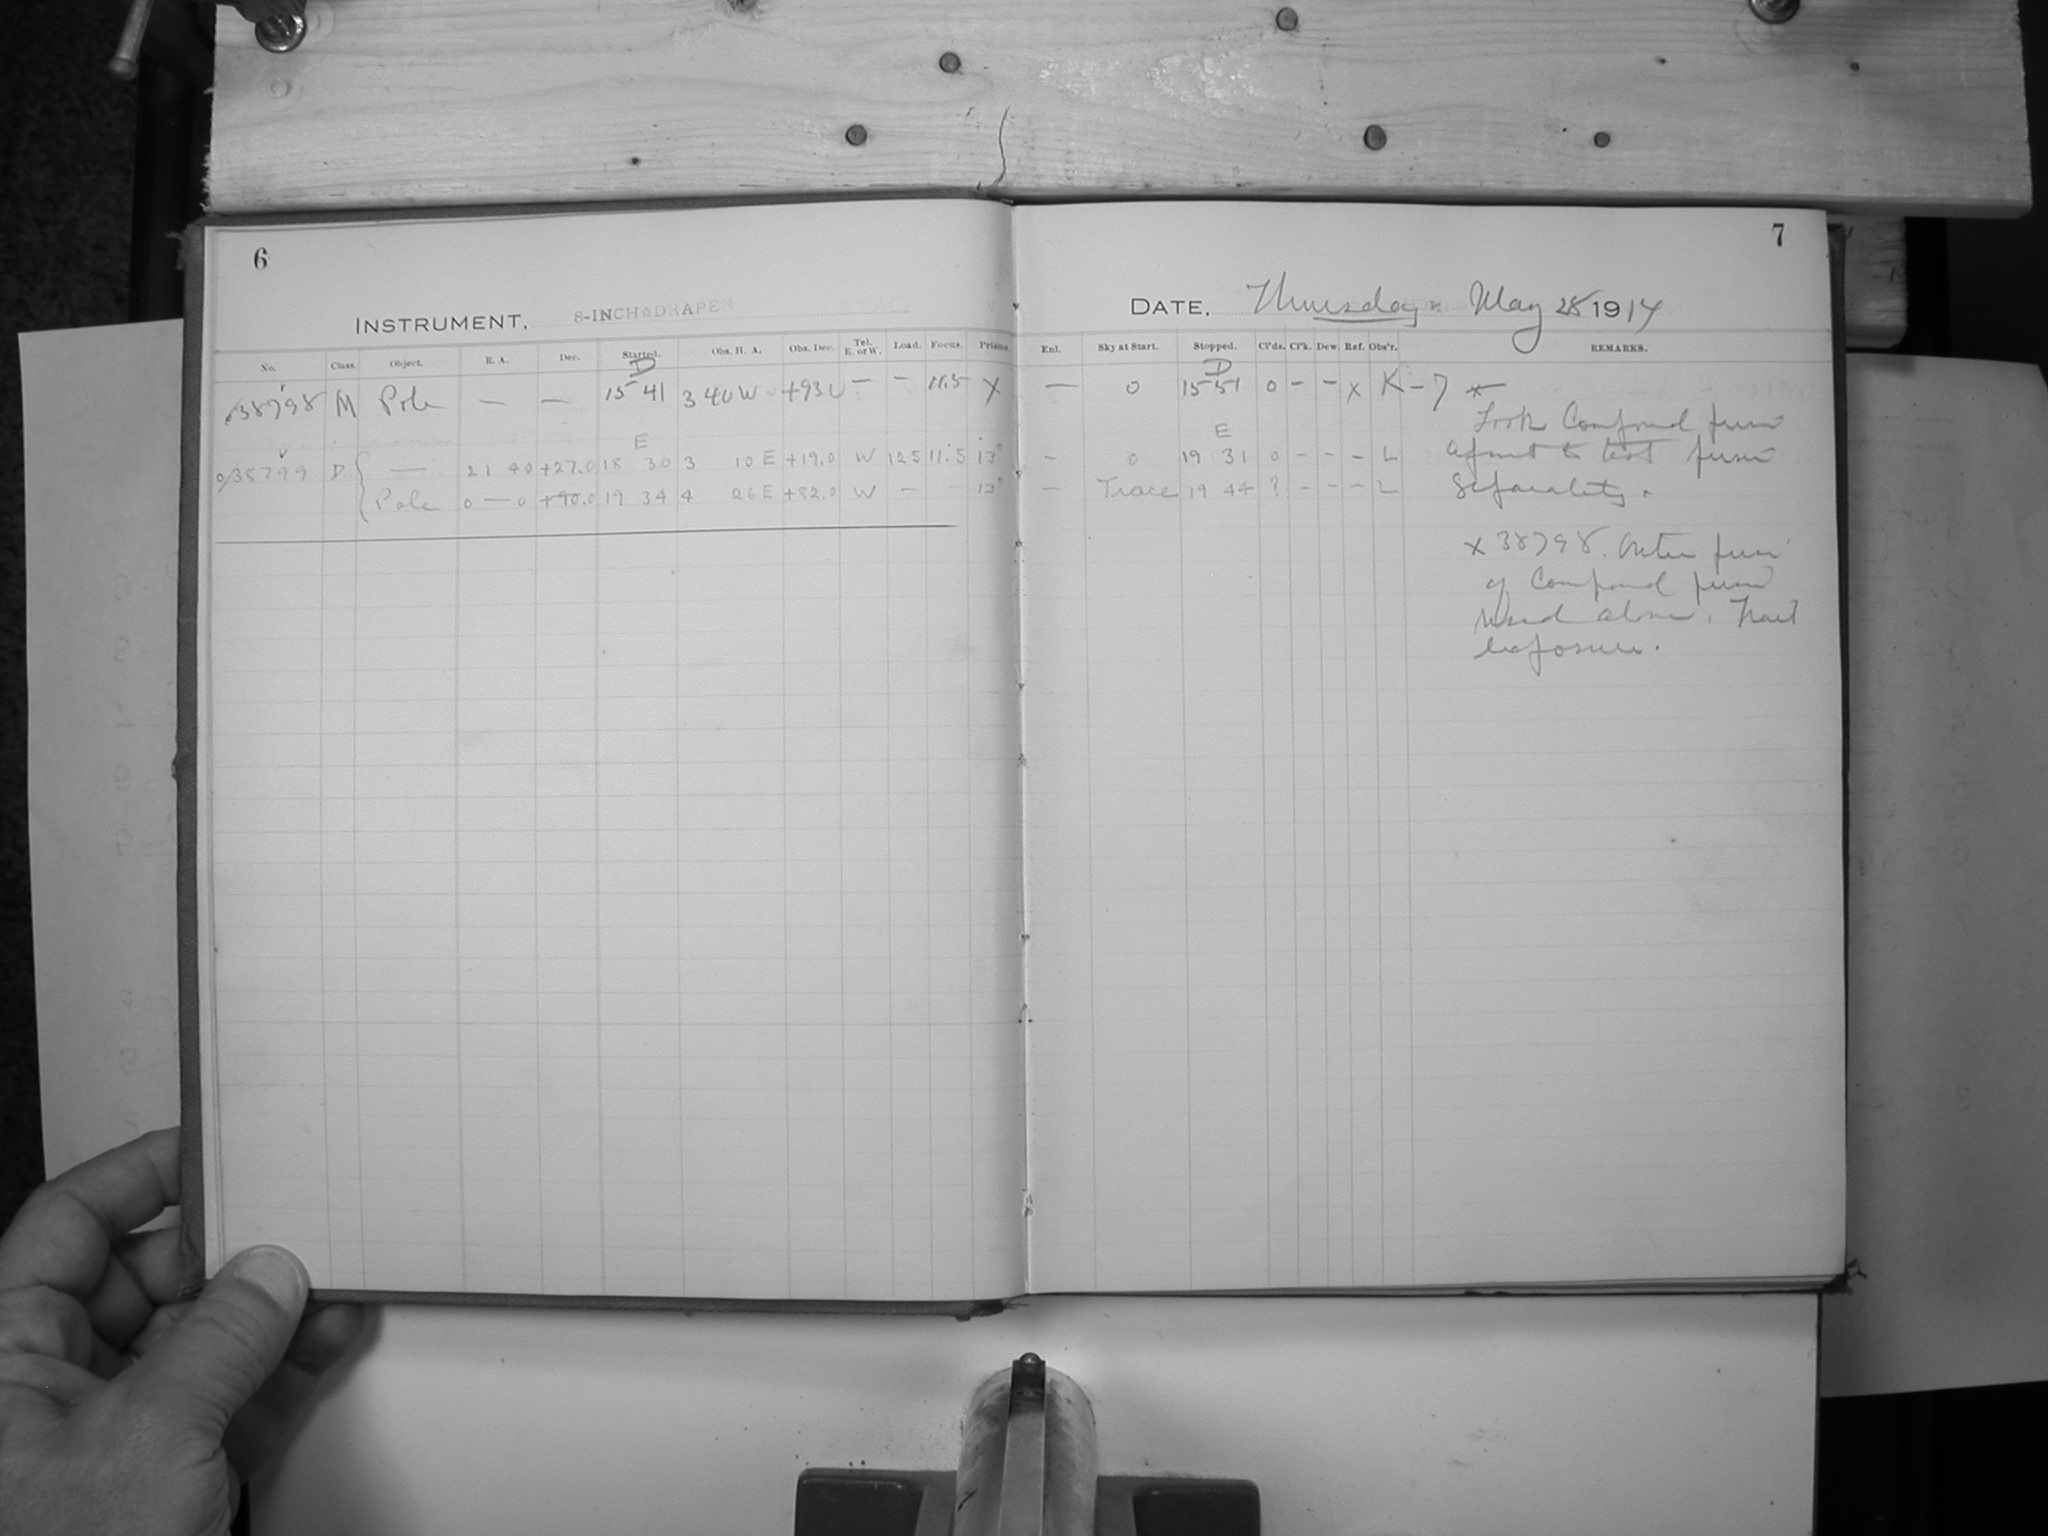 6
7
INSTRUMENT, 8-INCH DRAPER
DATE, Thursday May 28 1914
No. Class. Object. R. A. Dec. Started. Obs. H. A. Obs. Dec. Tel. E. or W. Load. Focus. Prism. Enl. Sky at Start. Stopped. Cl'ds. Cl'k. Dew. Ref. Obs'r. REMARKS.
D D
38798 M Pole — — 15 41 3 40 W +93 — — 11.5 X — 0 15 51 0 - - x K-7 *
Took Compound prism
E E
38799 D — 21 40 +27.0 18 30 3 10 E +19.0 W 125 11.5 13° - 0 19 31 0 - - - L apart to test prism
Pole 0 — 0 +90.0 19 34 4 26 E +82.0 W - - 13° - Trace 19 44 ? - - - L separately.
x 38798. Outer prism
of Compound prism
used alone. Trail
exposure.